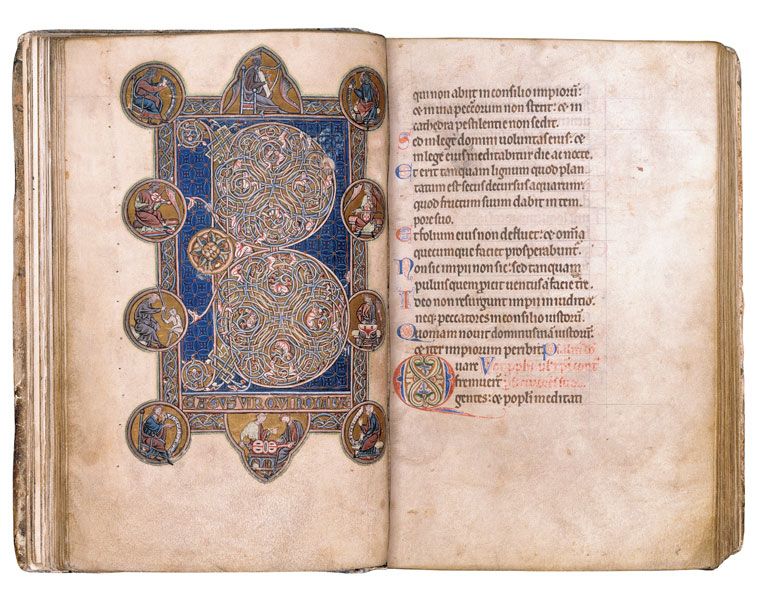 EATVS VIR QVI NON
qui non abiit in consilio impiorū:
⁊ in uia pecc̄orum non stetit: ⁊ in
cathedra pestilentie non sedit.
Sed in lege domini uoluntas eius: ⁊
in lege eius meditabitur die ac nocte.
Et erit tanquam lignum quod plan
tatum est secus decursus aquarum.
quod fructum suum dabit in tem
pore suo.
Et folium eius non defluet: ⁊ om̄ia
quecumque faciet prosperabunt̄.
Non sic impii non sic: sed tanquam
puluis quem proicit uentus a facie tr̄e.
Ideo non resurgunt impii in iuditio:
neq; peccatores in consilio iustorū.
Quoniam nouit dominus uiā iustorū:
⁊ iter impiorum peribit.
Quare
fremuerūt
gentes: ⁊ popl̄i meditati